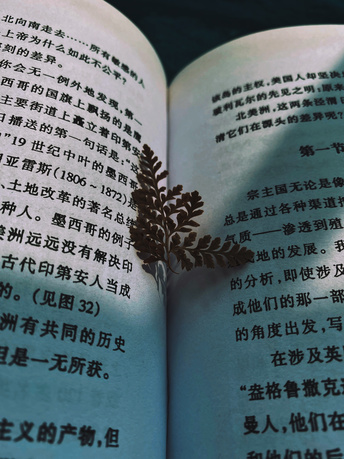 北向南走去……所有敏感的人
上帝为什么如此不公平?
刻的差异。
你会无一例外地发现,第一
西哥的国旗上飘扬的是他
主要街道上矗立着印第安
日播送的第一句话是:
”19 世纪中叶的墨西哥
阿亚雷斯(1806~1872)是
、土地改革的著名总统
种人。墨西哥的例子
美洲远远没有解决印
古代印第安人当成
的。(见图32)
洲有共同的历史
但是一无所获。
主义的产物,但
破岛的主权,美国人却坚决
蒙利瓦尔的先见之明;原来
北美洲,这两条经
请它们在源头的差异呢?
第一节
宗主国无论是
总是通过各种渠道
质——渗透到殖
地的发展。我
的分析,即使涉及
成他们的那一部
的角度出发,写
在涉及英
“盎格鲁撒克
曼人,他们在
和他们的后